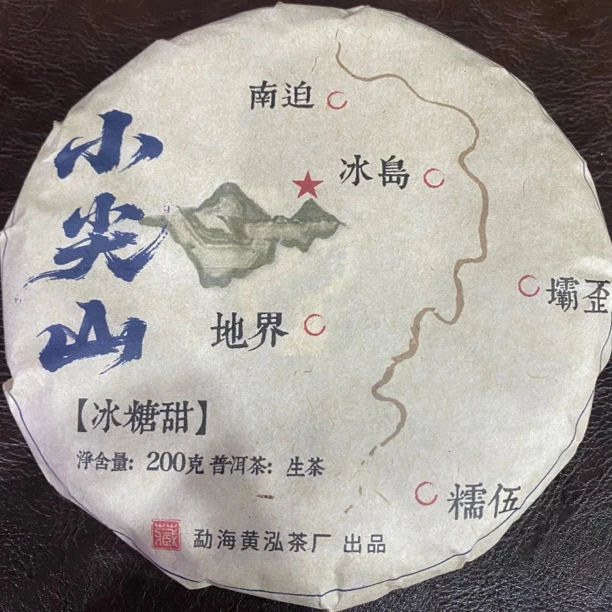 小尖山
南迫
冰島
壩歪
地界
糯伍
【冰糖甜】
淨含量：200克 普洱茶：生茶
藏
勐海黄泓茶厂 出品